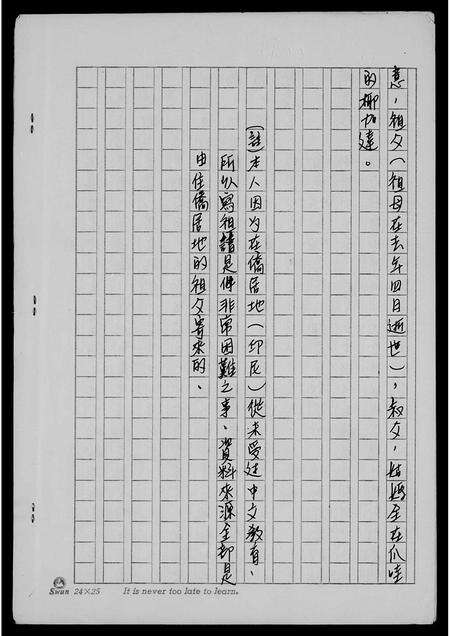 意,祖父(祖母在去年四日逝世),叔父,姑媽全在爪哇
的椰加達。
(註)本人因为在僑居地(印尼)從未受过中文教育、
所以寫祖譜是件非常困難之事、資料來源全部是
由住僑居地的祖父寄來的、
Swan 24×25 It is never too late to learn.